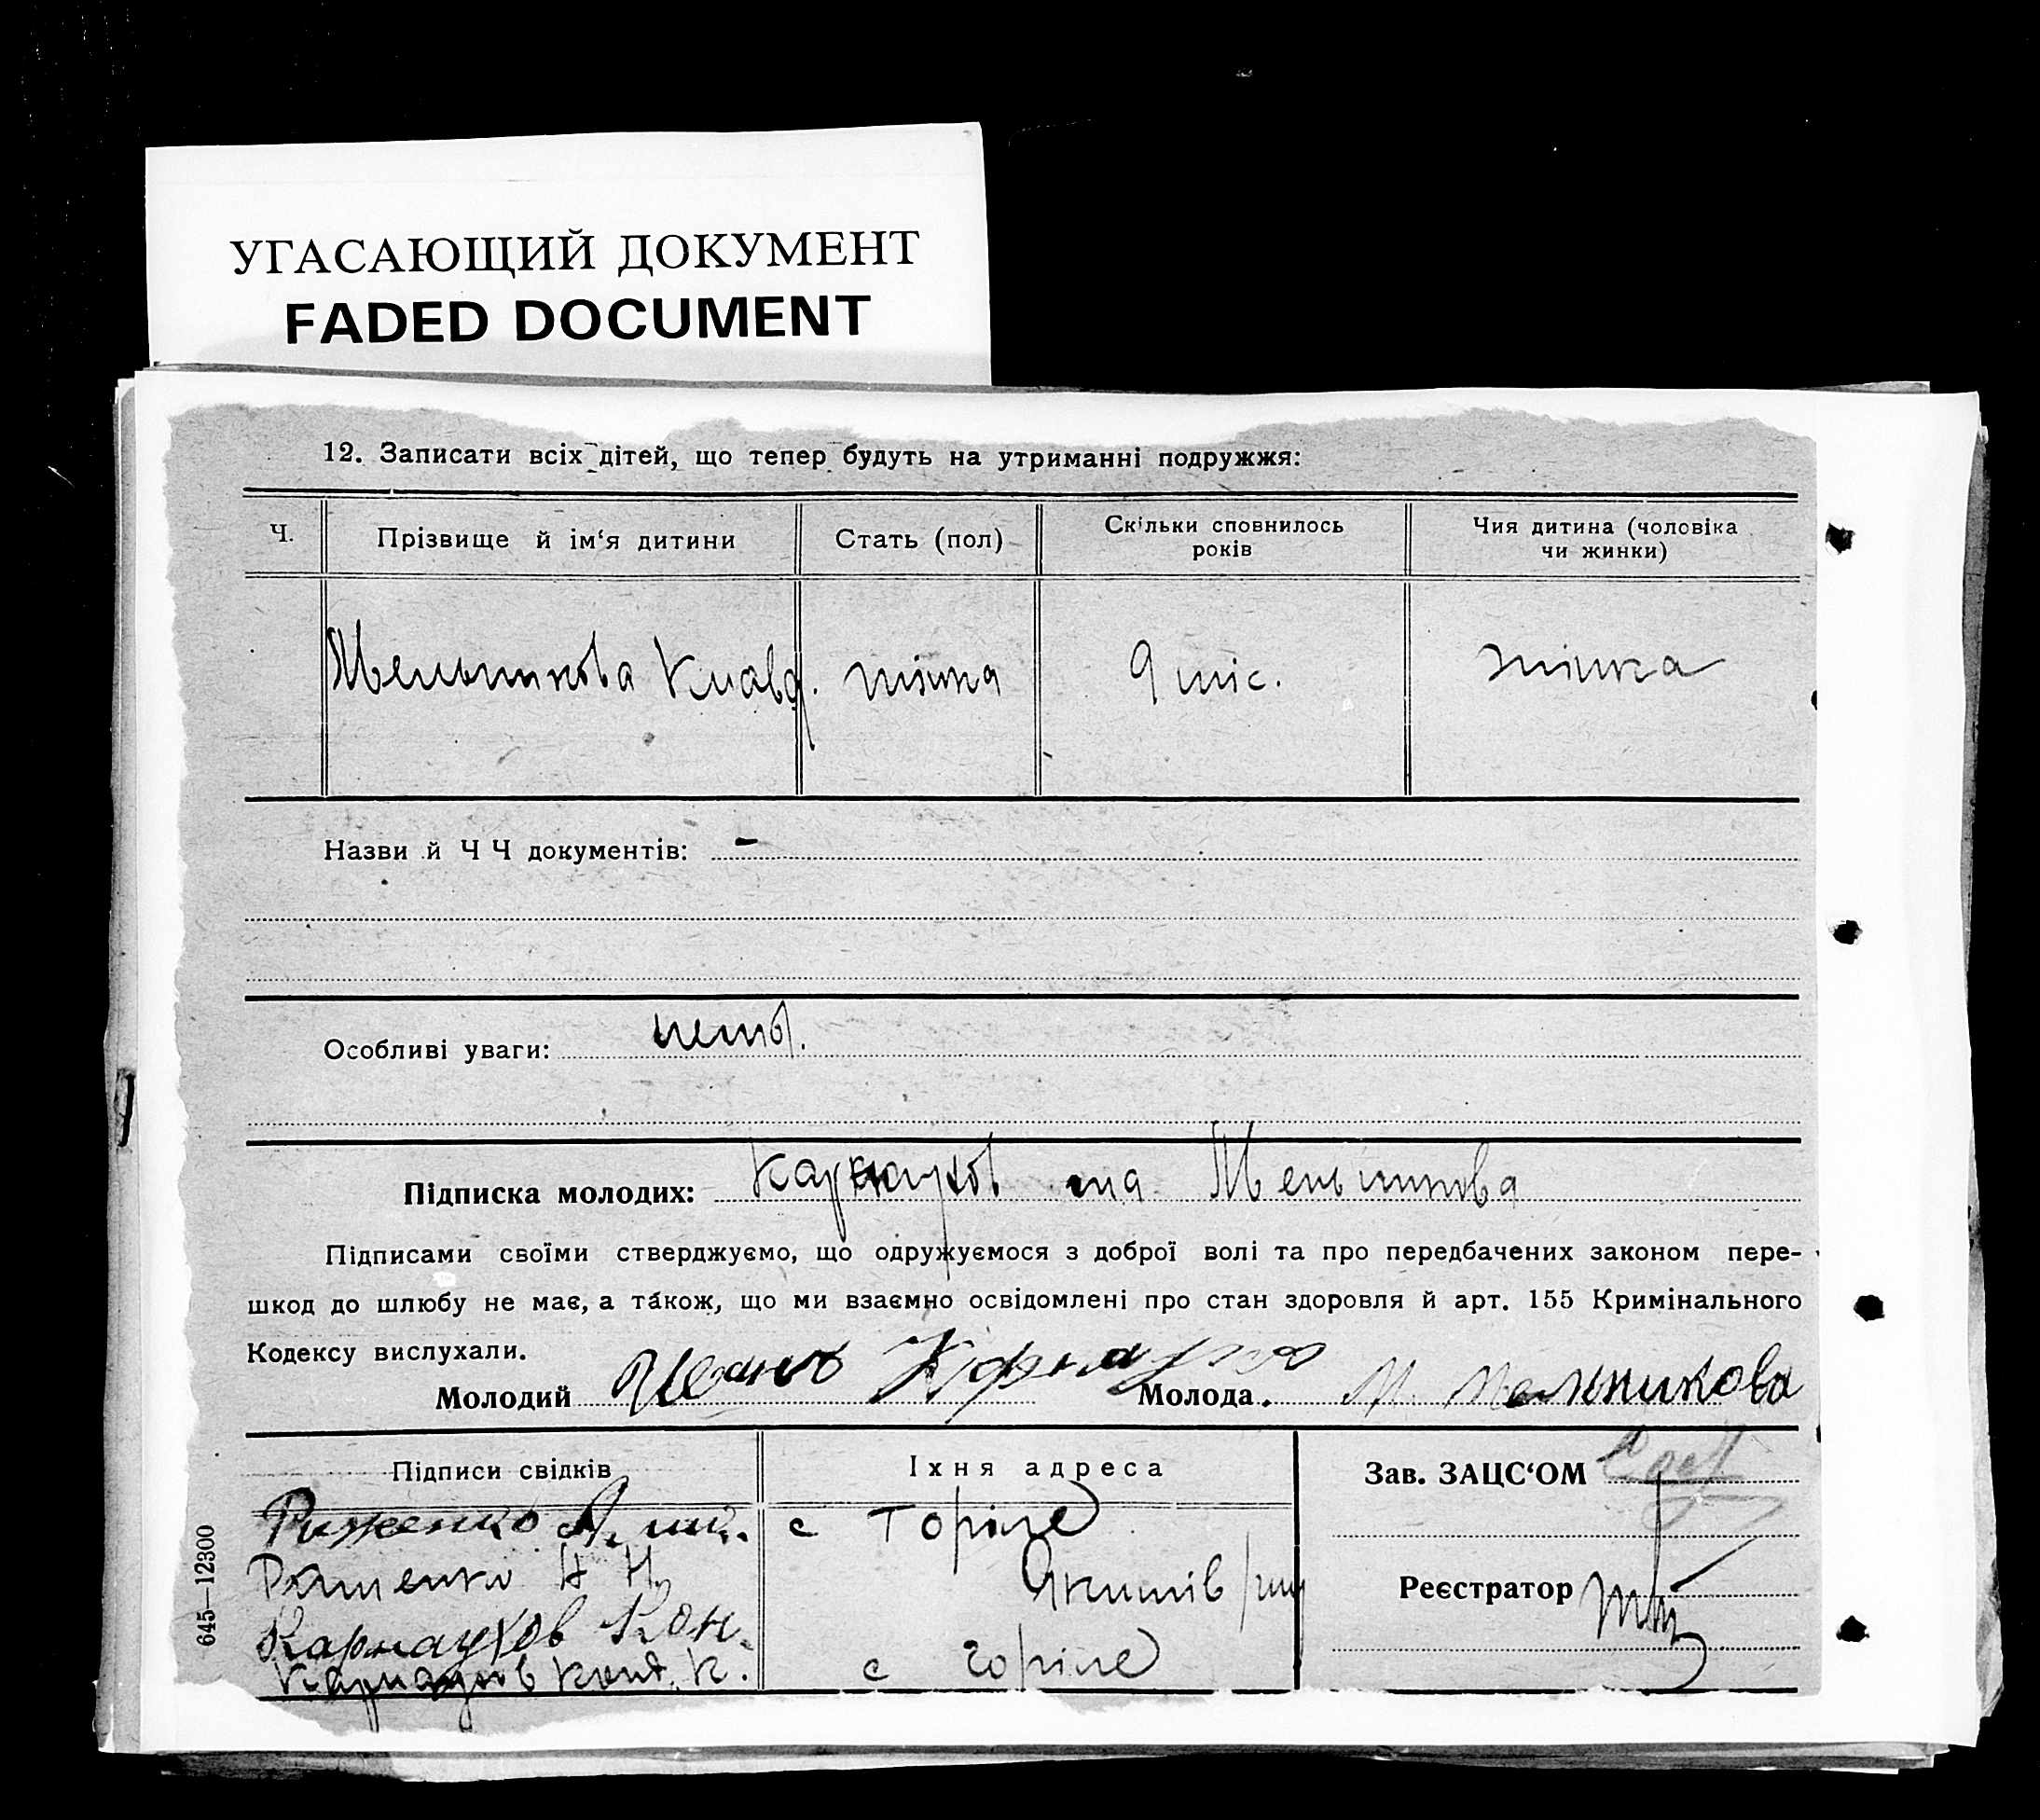 УГАСАЮЩИЙ ДОКУМЕНТ
FADED DOCUMENT
12. Записати всіх дітей, що тепер будуть на утриманні подружжя:
Ч.
Прізвище й ім‘я дитини
Стать (пол)
Скільки сповнилось років
Чия дитина (чоловіка чи жинки)
Мельникова Клавд.
жінка
9 міс.
жінка
Назви й Ч Ч документів: -
Особливі уваги:
Підписка молодих: Карнаухов та Мельникова
Підписами своїми стверджуємо, що одружуємося з доброї волі та про передбачених законом пере-
шкод до шлюбу не має, а також, що ми взаємно освідомлені про стан здоровля й арт. 155 Кримінального
Кодексу вислухали.
Молодий Иванъ Карнаухов Молода. М. Мельникова
Підписи свідків
Їхня адреса
Зав. ЗАЦС‘ОМ
с Горіле
Реєстратор
Карнаухов Кон.
Карнаухов Конд. К.
с Горіле
645—12300